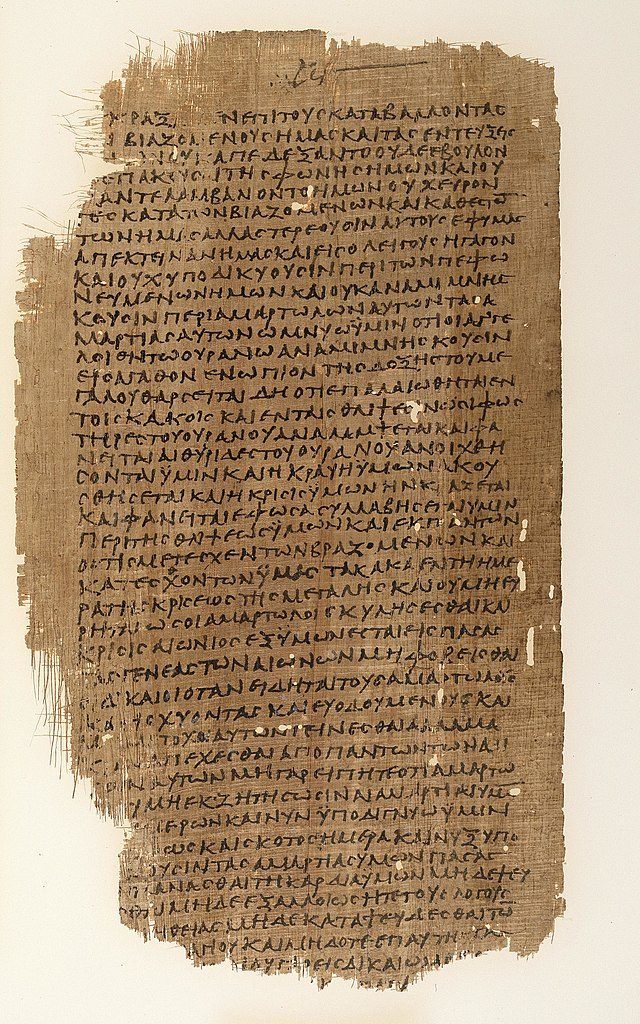 ΕΠΙ ΤΟΥΣ ΚΑΤΑΒΑΛΛΟΝΤΑΣ
ΗΜΑΣ ΚΑΙ ΤΑΣ ΕΝΤΕΥΞΕΙΣ
ΑΠΕΔΕΞΑΝΤΟ ΟΥΔΕ ΕΒΟΥΛΟΝ
ΤΗΣ ΦΩΝΗΣ ΗΜΩΝ ΚΑΙ ΟΥ
ΑΝΤΕΛΑΜΒΑΝΟΝΤΟ ΗΜΩΝ ΟΥΧ ΕΥΡΟΝ
ΤΕΣ ΚΑΤΑ ΤΩΝ ΒΙΑΖΟΜΕΝΩΝ ΚΑΙ
ΤΩΝ ΗΜΑΣ ΑΛΛΑ ΣΤΕΡΕΟΥΣΙΝ ΑΥΤΟΥΣ ΕΦ ΫΜΑΣ
ΑΠΕΚΤΕΙΝΑΝ ΗΜΑΣ ΚΑΙ ΕΙΣ ΟΛΕΙΓΟΥΣ ΗΓΑΓΟΝ
ΚΑΙ ΟΥΧ ΥΠΟΔΙΚΥΟΥΣΙΝ ΠΕΡΙ ΤΩΝ ΠΕΦΩ
ΝΕΥΜΕΝΩΝ ΗΜΩΝ ΚΑΙ ΟΥΚ ΑΝΑΜΙΜΝΗΣ
ΚΟΥΣΙΝ ΠΕΡΙ ΑΜΑΡΤΩΛΩΝ ΑΥΤΩΝ ΤΑΣ Α
ΜΑΡΤΙΑΣ ΑΥΤΩΝ ΟΜΝΥΩ ΫΜΙΝ ΟΤΙ ΟΙ ΑΓΓΕ
ΛΟΙ ΕΝ ΤΩ ΟΥΡΑΝΩ ΑΝΑΜΙΜΝΗΣΚΟΥΣΙΝ
ΕΙΣ ΑΓΑΘΟΝ ΕΝΩΠΙΟΝ ΤΗΣ ΔΟΞΗΣ ΤΟΥ ΜΕ
ΓΑΛΟΥ ΘΑΡΣΕΙΤΑΙ ΔΗ ΟΤΙ ΕΠΑΛΑΙΩΘΗΤΑΙ ΕΝ
ΤΟΙΣ ΚΑΚΟΙΣ ΚΑΙ ΕΝ ΤΑΙΣ ΘΛΙΨΕΣΙΝ ΩΣΙ ΦΩΣ
ΤΗΡΕΣ ΤΟΥ ΟΥΡΑΝΟΥ ΑΝΑΛΑΜΨΕΤΑΙ ΚΑΙ ΦΑ
ΝΕΙΤΑΙ ΑΙ ΘΥΡΙΔΕΣ ΤΟΥ ΟΥΡΑΝΟΥ ΑΝΟΙΧΘΗ
ΣΟΝΤΑΙ ΫΜΙΝ ΚΑΙ Η ΚΡΑΥΗ ΫΜΩΝ ΑΚΟΥ
ΣΘΗΣΕΤΑΙ ΚΑΙ Η ΚΡΙΣΙΣ ΫΜΩΝ ΗΝ ΚΡΑΖΕΤΑΙ
ΚΑΙ ΦΑΝΕΙΤΑΙ ΕΦ ΟΣΑ ΣΥΛΛΑΒΗΣΕΤΑΙ ΥΜΙΝ
ΠΕΡΙ ΤΗΣ ΘΛΙΨΕΩΣ ΫΜΩΝ ΚΑΙ ΕΚ ΠΑΝΤΩΝ
ΟΣΤΙΣ ΜΕΤΕΣΧΕΝ ΤΩΝ ΒΡΑΖΟΜΕΝΩΝ ΚΑΙ
ΚΑΤΕΣΧΟΝΤΩΝ ΫΜΑΣ ΤΑ ΚΑΚΑ ΕΝ ΤΗ ΗΜΕ
ΡΑ ΤΗΣ ΚΡΙΣΕΩΣ ΤΗΣ ΜΕΓΑΛΗΣ ΚΑΙ ΟΥ ΜΗ ΕΥ
ΡΗΤΑΙ ΩΣ ΟΙ ΑΜΑΡΤΩΛΟΙ ΣΚΥΛΗΣΕΣΘΑΙ ΚΑΙ
ΚΡΙΣΙΣ ΑΙΩΝΙΟΣ ΕΞ ΫΜΩΝ ΕΣΤΑΙ ΕΙΣ ΠΑΣΑΣ
ΤΑΣ ΓΕΝΕΑΣ ΤΩΝ ΑΙΩΝΩΝ ΜΗ ΦΟΒΕΙΣΘΑΙ
ΔΙΚΑΙΟΙ ΟΤΑΝ ΕΙΔΗΤΑΙ ΤΟΥΣ ΑΜΑΡΤΩΛΟΥΣ
ΚΑΙ ΕΥΟΔΟΥΜΕΝΟΥΣ ΚΑΙ
ΑΥΤΩΝ ΓΕΙΝΕΣΘΑΙ ΑΛΛΑ ΜΑ
ΑΠΕΧΕΣΘΑΙ ΑΠΟ ΠΑΝΤΩΝ ΤΩΝ
ΑΥΤΩΝ ΜΗ ΓΑΡ ΕΙΠΗΤΕ ΟΤΙ ΑΜΑΡΤΩ
ΜΗ ΕΚΖΗΤΗΣΩΣΙΝ ΑΜΑΡΤΙΑΙ ΥΜΩ
ΚΑΙ ΝΥΝ ΫΠΟΔΙΓΝΥΩ ΫΜΙΝ
ΚΑΙ ΣΚΟΤΟΣ ΗΜΕΡΑ ΚΑΙ ΝΥΞ ΕΠΟ
ΤΑΣ ΑΜΑΡΤΙΑΣ ΥΜΩΝ ΠΑΣΑΣ
ΤΗ ΚΑΡΔΙΑ ΥΜΩΝ ΜΗΔΕ ΨΕΥ
ΜΗΔΕ ΕΞΑΛΛΟΙΩΣΗΤΕ ΤΟΥΣ ΛΟΓΟΥΣ
ΜΗΔΕ ΚΑΤΑΨΕΥΔΕΣΘΑΙ ΤΩ
ΚΑΙ ΜΗ ΔΟΤΕ ΕΠΑ
ΔΙΚΑΙΩΜΑ